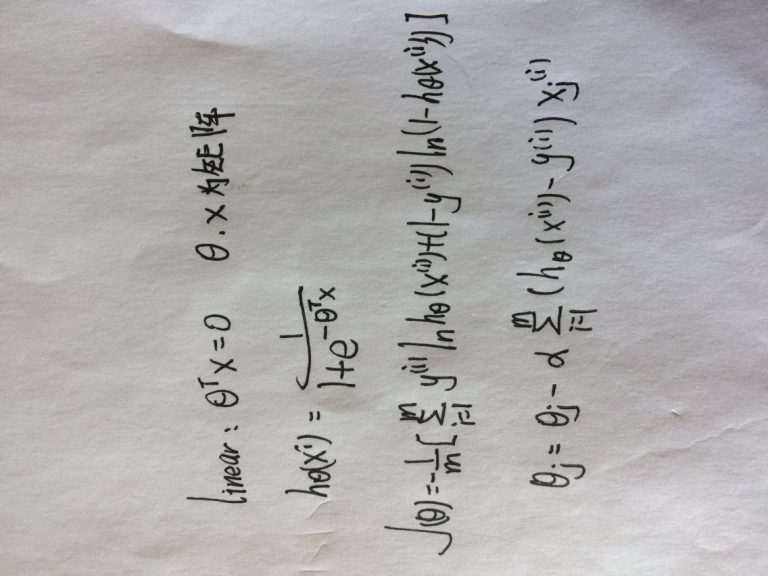 linear: θᵀx=0 θ.x为矩阵
hθ(xⁱ) = 1/(1+e^(-θᵀx))
J(θ)=-1/m[∑_{i=1}^{m} y⁽ⁱ⁾ln hθ(x⁽ⁱ⁾)+(1-y⁽ⁱ⁾)ln(1-hθ(x⁽ⁱ⁾))]
θj = θj - α ∑_{i=1}^{m} (hθ(x⁽ⁱ⁾)-y⁽ⁱ⁾)xj⁽ⁱ⁾